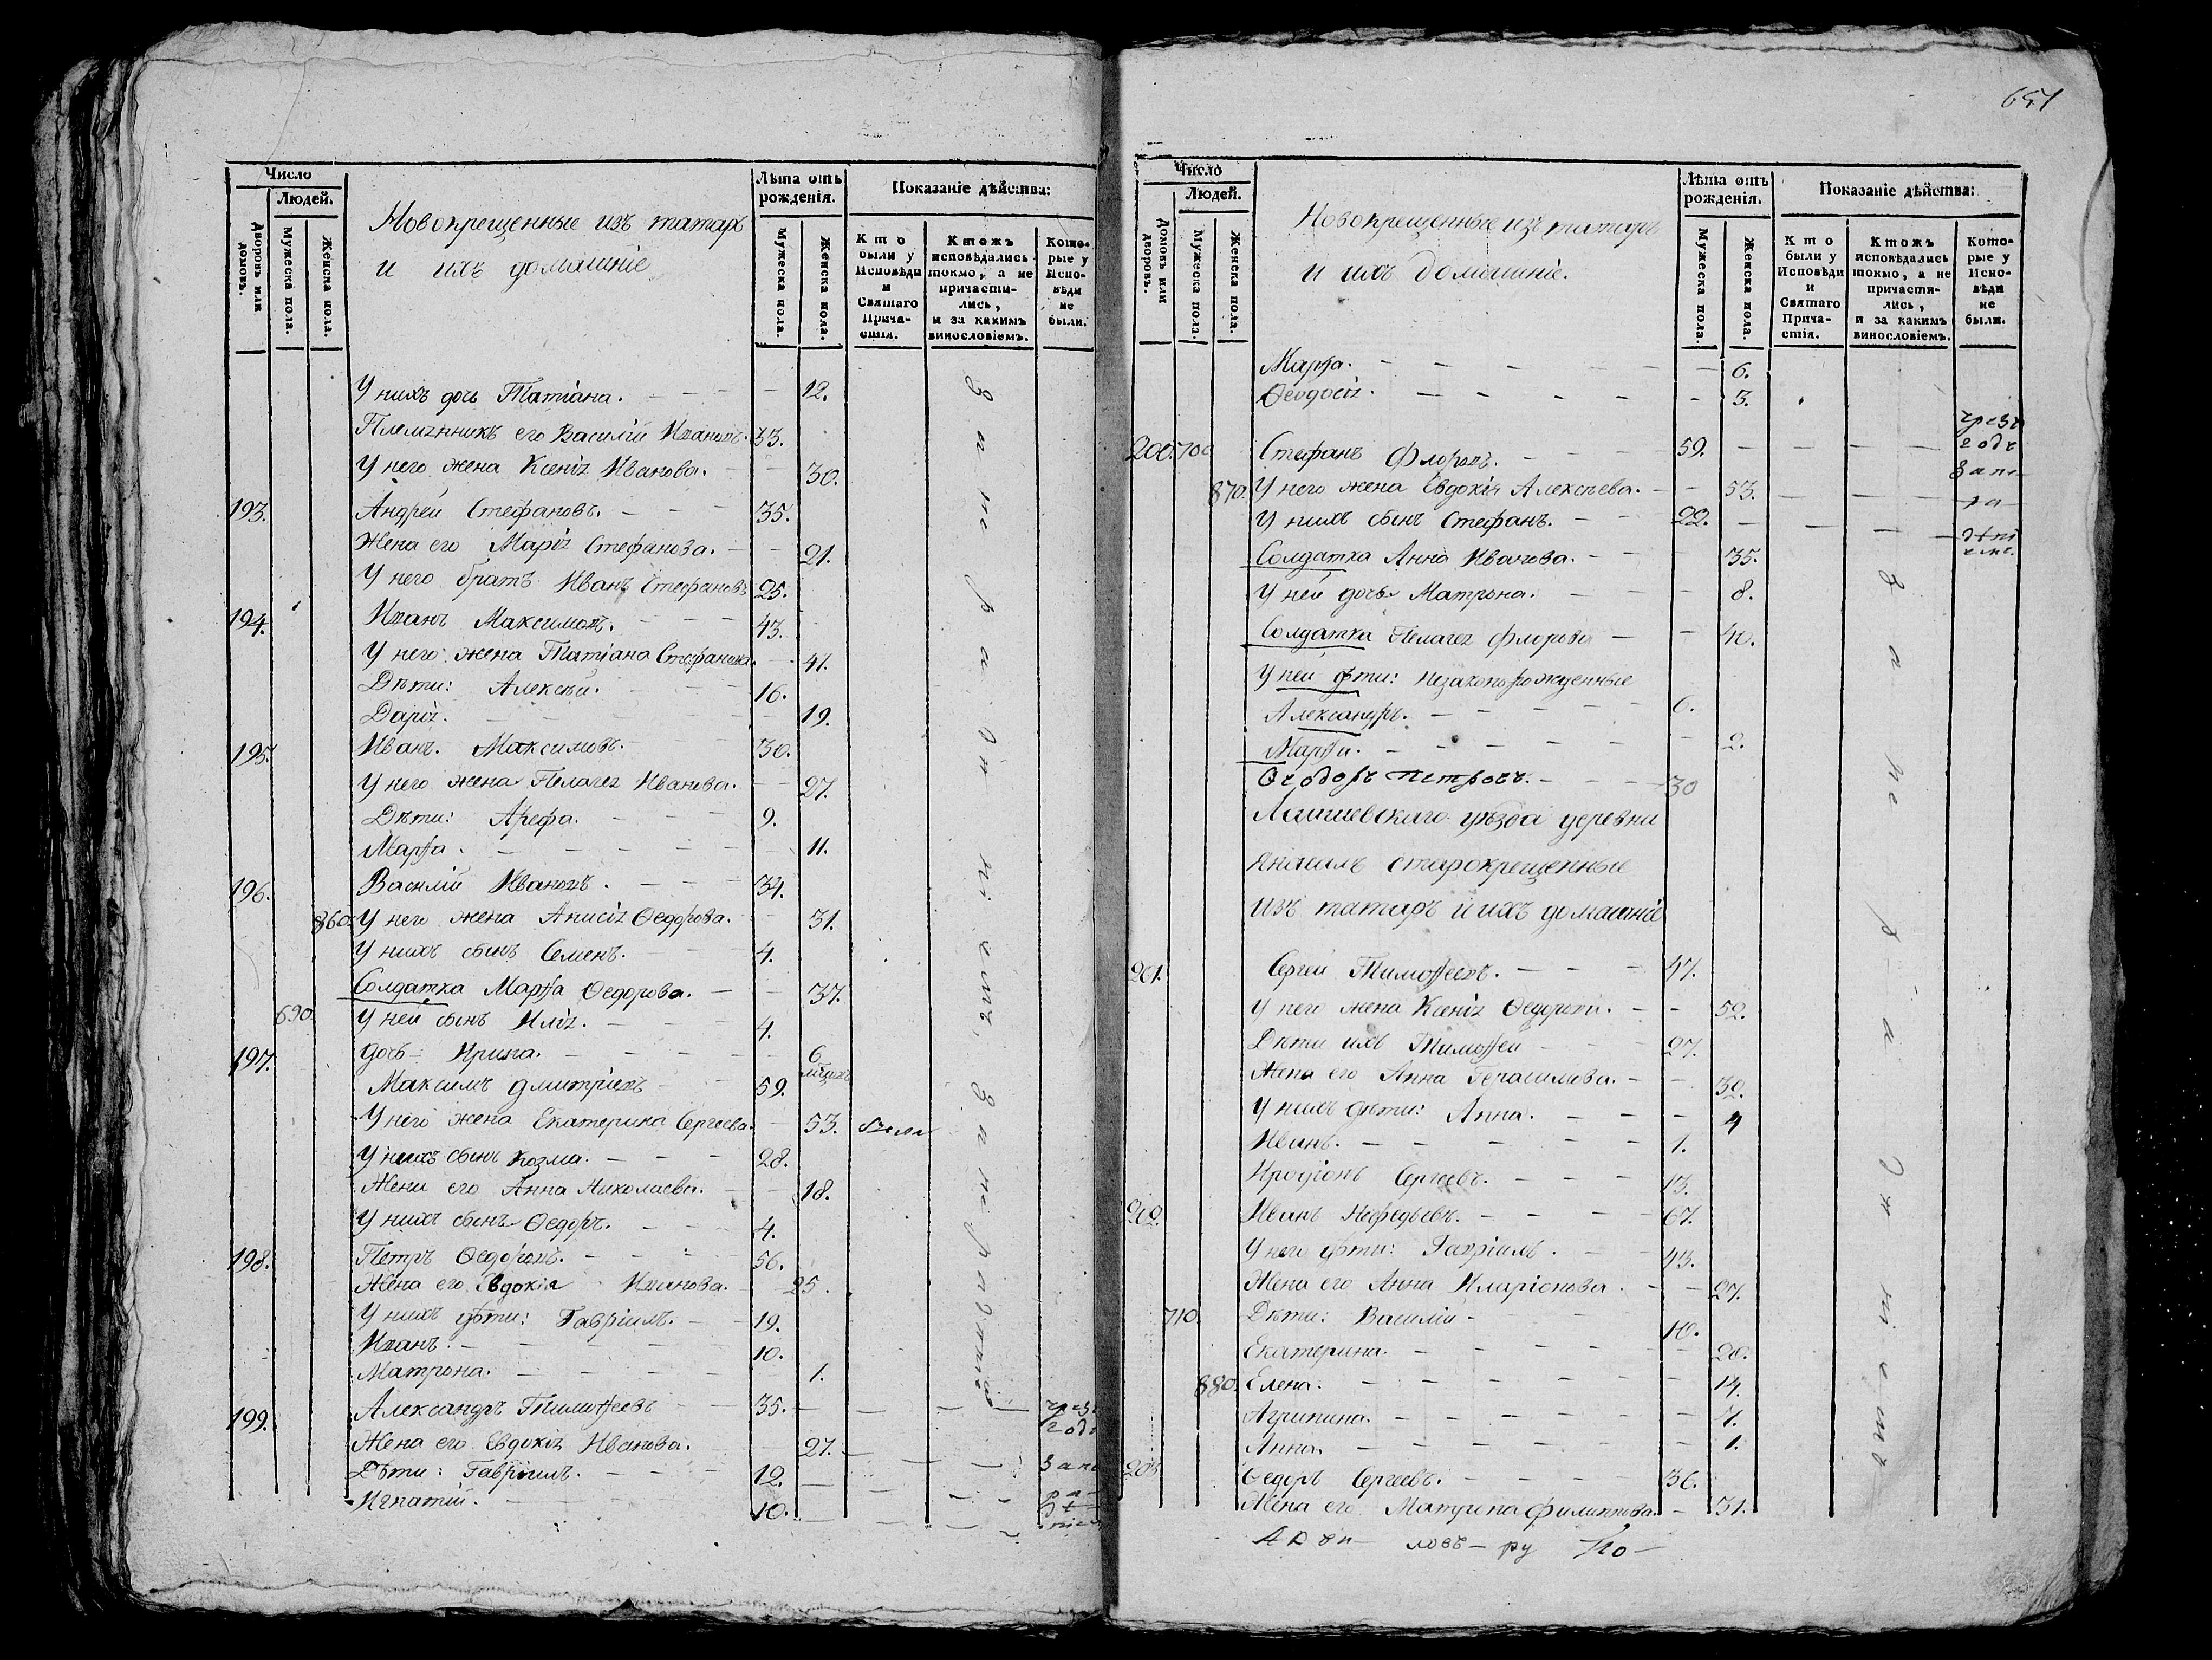 Число
Людей.
Дворовъ или домовъ.
Мужеска пола.
Женска пола.
Новокрещенные изъ татаръ
и ихъ домашніе
Лѣта отъ рожденія.
Мужеска пола.
Женска пола.
Показаніе дѣйства:
Кто были у Исповѣди и Святаго Причастія.
Ктожъ исповѣдались токмо, а не причастились, и за какимъ винословіемъ.
Которые у Исповѣди не были.
У нихъ дочь Татіана. 12.
Племянникъ его Василій Ивановъ. 33.
У него жена Ксенія Иванова. 30.
193. Андрей Стефановъ. 35.
Жена его Марія Стефанова. 21.
У него братъ Иванъ Стефановъ 25.
194. Иванъ Максимовъ. 43.
У него жена Татіана Стефанова. 41.
Дѣти: Алексѣй. 16.
Дарія. 19.
195. Иванъ Максимовъ. 30.
У него жена Пелагея Иванова. 27.
Дѣти: Арефа. 9.
Марѳа. 11.
196. Василій Ивановъ. 34.
860. У него жена Анисія Ѳедорова. 31.
У нихъ сынъ Семенъ. 4.
Солдатка Марѳа Ѳедорова. 37.
690. У ней сынъ Илія. 4.
дочь Ирина. 6
197. Максимъ Дмитріевъ 59.
У него жена Екатерина Сергеева. 53.
У нихъ сынъ Козма. 28.
Жена его Анна Николаева. 18.
У нихъ сынъ Ѳедоръ. 4.
198. Петръ Ѳедоровъ. 56.
Жена его Евдокія Иванова. 25.
У нихъ дѣти: Гавріилъ. 19.
Иванъ. 10.
Матрона. 1.
199. Александръ Тимоѳеевъ 35.
Жена его Евдокія Иванова. 27.
Дѣти: Гавріилъ. 12.
Игнатій. 10.
за нерадѣніемъ
за нерадѣніемъ
651
Число
Людей.
Домовъ или дворовъ.
Мужеска пола.
Женска пола.
Новокрещенные изъ татаръ
и ихъ домашніе.
Лѣта отъ рожденія.
Мужеска пола.
Женска пола.
Показаніе дѣйства:
Кто были у Исповѣди и Святаго Причастія.
Ктожъ исповѣдались токмо, а не причастились, и за какимъ винословіемъ.
Которые у Исповѣди не были.
Марѳа. 6.
Ѳеодосія. 3.
200. 700 Стефанъ Флоровъ. 59.
870. У него жена Евдокія Алексѣева. 53.
У нихъ сынъ Стефанъ. 22.
Солдатка Анна Иванова. 35.
У ней дочь Матрона. 8.
Солдатка Пелагея Флорова 40.
У ней дѣти: незаконорожденные
Александръ. 6.
Марѳа. 2.
Ѳеодоръ Петровъ. 30
Лаишевскаго уѣзда деревни
старокрещенные
изъ татаръ и ихъ домашніе
201. Сергей Тимоѳеевъ. 47.
У него жена Ксенія Ѳедорова. 52.
Дѣти ихъ Тимоѳей 27.
Жена его Анна Герасимова. 32.
У нихъ дѣти: Анна. 4
Иванъ. 1.
Иродіонъ Сергеевъ. 13.
202. Иванъ Нефедьевъ. 67.
У него дѣти: Гавріилъ. 43.
Жена его Анна Иларіонова. 27.
710. Дѣти: Василій 10.
Екатерина. 20.
880. Елена. 14.
Агрипина. 4.
Анна. 1.
203 Ѳедоръ Сергеевъ. 36.
Жена его Матрена Филиппова. 31.
чрезъ годъ
за нерадѣніемъ
за нерадѣніемъ